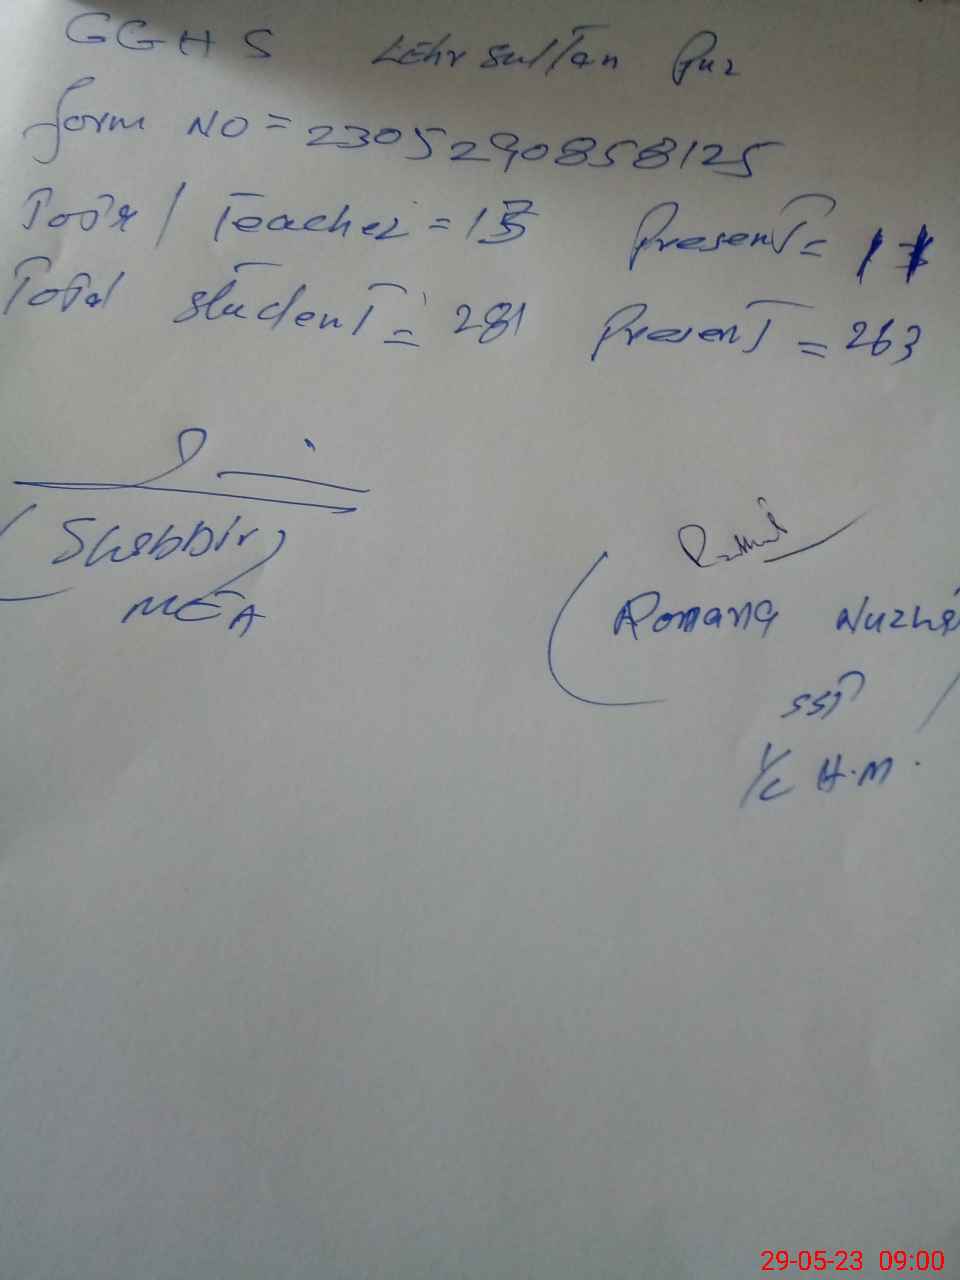 GGHS Lehr Sultan Pur
form NO = 2305290858125
Teacher = 13 Present = 11
Total student = 281 Present = 263
(Shabbir)
MEA
Romana
SST
I/C H.M.
29-05-23 09:00